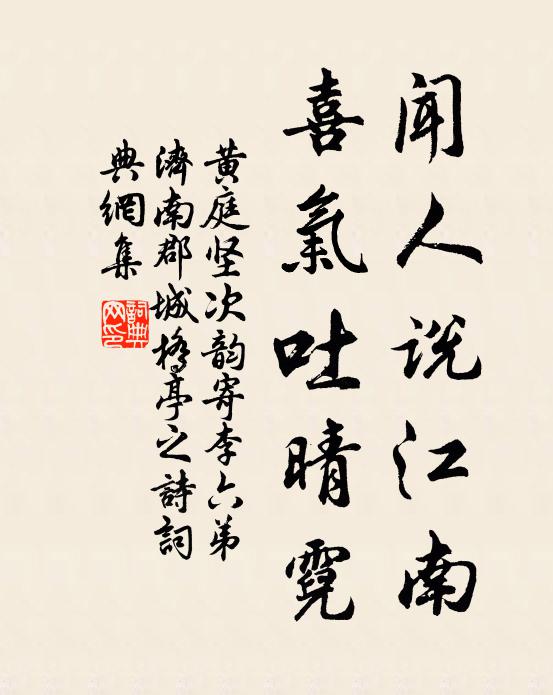 闻人说江南
喜氣吐晴霓
黄庭坚次韵寄李六弟
濟南郡城橋亭之詩詞
典網集
詞典
网印